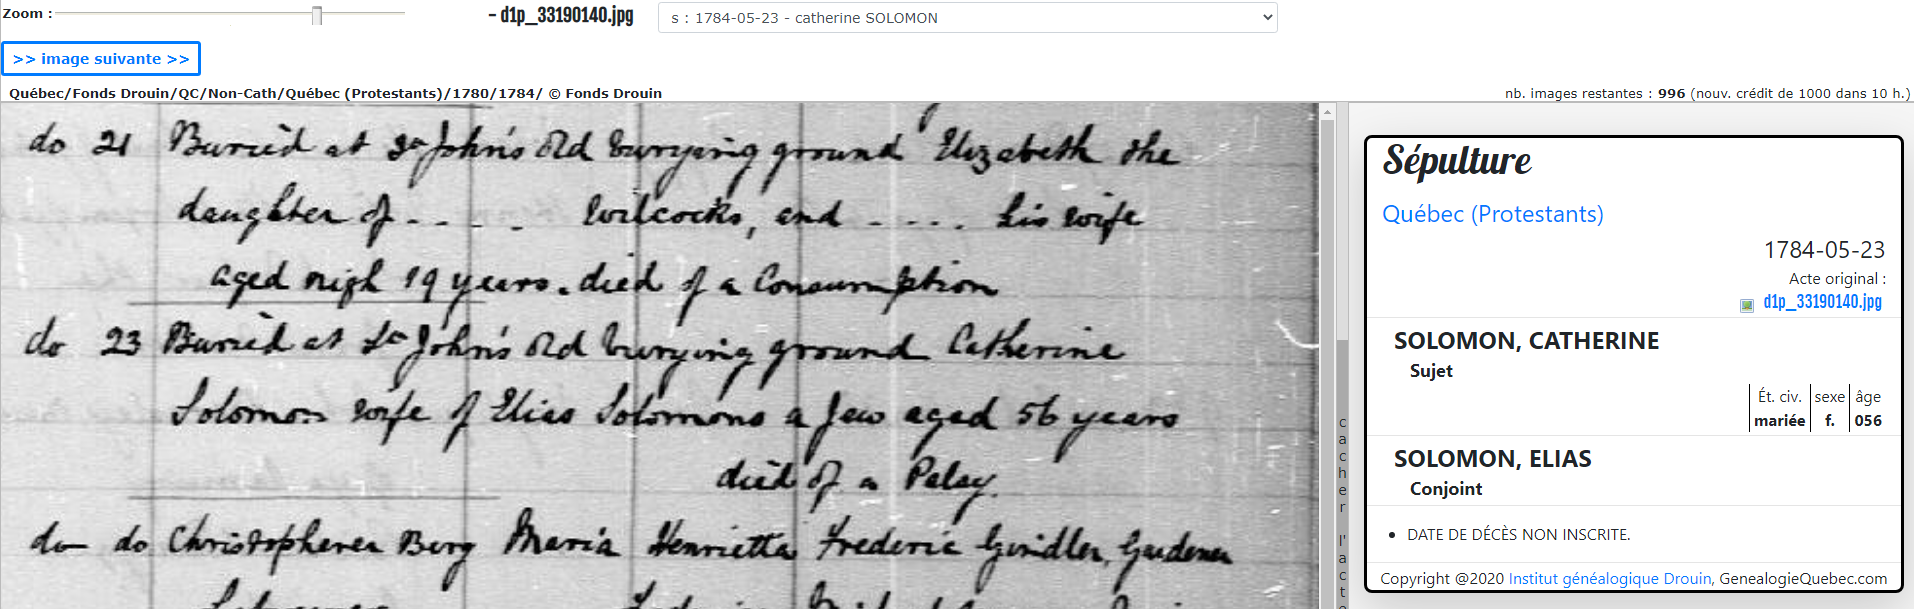 Zoom :
– d1p_33190140.jpg
s : 1784-05-23 - catherine SOLOMON
>> image suivante >>
Québec/Fonds Drouin/QC/Non-Cath/Québec (Protestants)/1780/1784/ © Fonds Drouin
nb. images restantes : 996 (nouv. crédit de 1000 dans 10 h.)
do 21 Buried at St John's Old burying ground Elizabeth the
daughter of .. . . Wilcocks, and . . . . his wife
aged nigh 19 years. died of a Consumption
do 23 Buried at St John's Old burying ground Catherine
Solomon wife of Elias Solomons a Jew aged 56 years
died of a Palsy.
do do Berg Maria Henrietta Frederic
cacher l'acte
Sépulture
Québec (Protestants)
1784-05-23
Acte original :
d1p_33190140.jpg
SOLOMON, CATHERINE
Sujet
Ét. civ. sexe âge
mariée f. 056
SOLOMON, ELIAS
Conjoint
• DATE DE DÉCÈS NON INSCRITE.
Copyright @2020 Institut généalogique Drouin, GenealogieQuebec.com